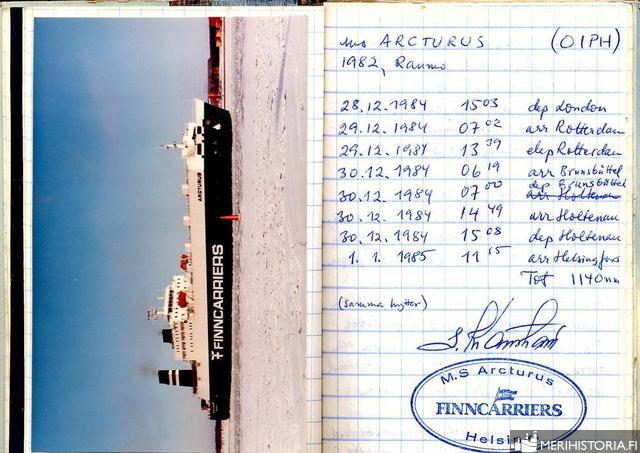 ARCTURUS
FINNCARRIERS
m/s ARCTURUS (OIPH)
1982, Rauma
28.12.1984 15 03 dep London
29.12.1984 07 02 arr Rotterdam
29.12.1984 13 39 dep Rotterdam
30.12.1984 06 19 arr Brunsbüttel
30.12.1984 07 00 dep Brunsbüttel
arr Holtenau
30.12.1984 14 49 arr Holtenau
30.12.1984 15 08 dep Holtenau
1.1. 1985 11 15 arr Helsingfors
Tot 1140nm
(samma hytter)
M.S Arcturus
FINNCARRIERS
Helsinki
MERIHISTORIA.FI